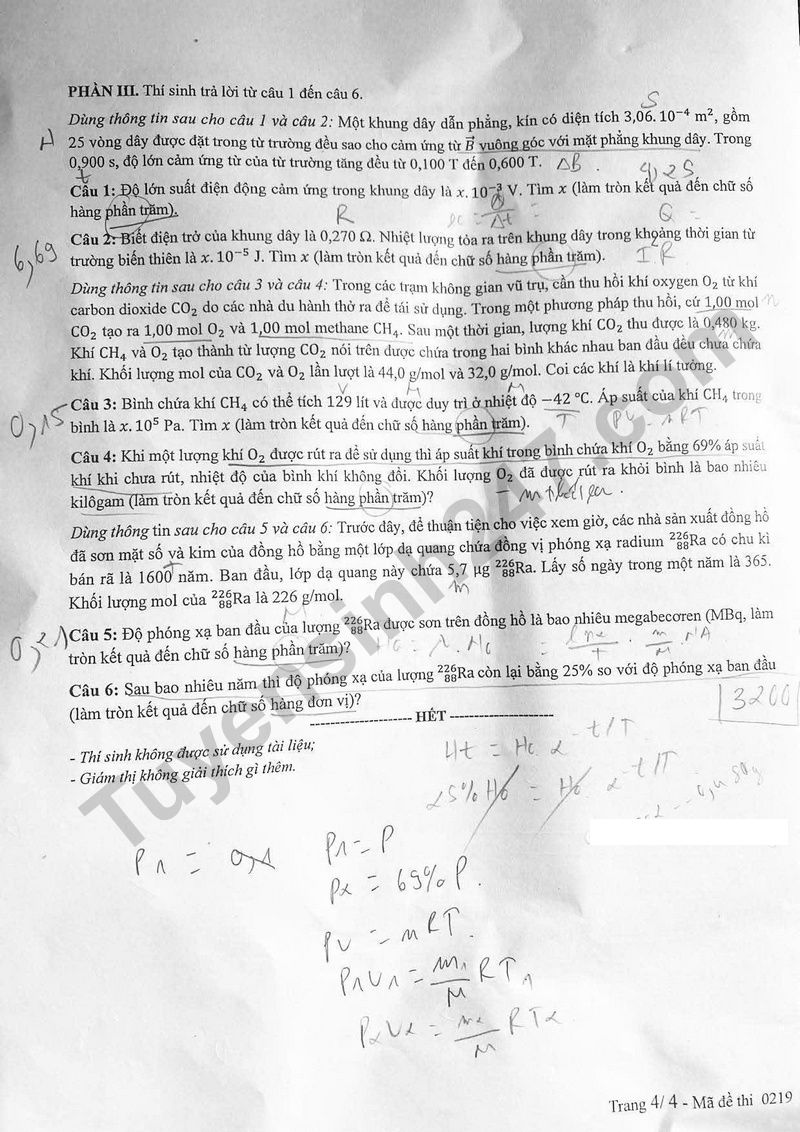 PHẦN III. Thí sinh trả lời từ câu 1 đến câu 6.
Dùng thông tin sau cho câu 1 và câu 2: Một khung dây dẫn phẳng, kín có diện tích 3,06. 10⁻⁴ m², gồm
25 vòng dây được đặt trong từ trường đều sao cho cảm ứng từ B⃗ vuông góc với mặt phẳng khung dây. Trong
0,900 s, độ lớn cảm ứng từ của từ trường tăng đều từ 0,100 T đến 0,600 T. ΔB
Câu 1: Độ lớn suất điện động cảm ứng trong khung dây là x. 10⁻³ V. Tìm x (làm tròn kết quả đến chữ số
hàng phần trăm).
Câu 2: Biết điện trở của khung dây là 0,270 Ω. Nhiệt lượng tỏa ra trên khung dây trong khoảng thời gian từ
trường biến thiên là x. 10⁻⁵ J. Tìm x (làm tròn kết quả đến chữ số hàng phần trăm).
6,69
Dùng thông tin sau cho câu 3 và câu 4: Trong các trạm không gian vũ trụ, cần thu hồi khí oxygen O₂ từ khí
carbon dioxide CO₂ do các nhà du hành thở ra để tái sử dụng. Trong một phương pháp thu hồi, cứ 1,00 mol
CO₂ tạo ra 1,00 mol O₂ và 1,00 mol methane CH₄. Sau một thời gian, lượng khí CO₂ thu được là 0,480 kg.
Khí CH₄ và O₂ tạo thành từ lượng CO₂ nói trên được chứa trong hai bình khác nhau ban đầu đều chưa chứa
khí. Khối lượng mol của CO₂ và O₂ lần lượt là 44,0 g/mol và 32,0 g/mol. Coi các khí là khí lí tưởng.
Câu 3: Bình chứa khí CH₄ có thể tích 129 lít và được duy trì ở nhiệt độ −42 °C. Áp suất của khí CH₄ trong
bình là x. 10⁵ Pa. Tìm x (làm tròn kết quả đến chữ số hàng phần trăm).
PV = nRT
Câu 4: Khi một lượng khí O₂ được rút ra để sử dụng thì áp suất khí trong bình chứa khí O₂ bằng 69% áp suất
khí khi chưa rút, nhiệt độ của bình khí không đổi. Khối lượng O₂ đã được rút ra khỏi bình là bao nhiêu
kilôgam (làm tròn kết quả đến chữ số hàng phần trăm)?
Dùng thông tin sau cho câu 5 và câu 6: Trước đây, để thuận tiện cho việc xem giờ, các nhà sản xuất đồng hồ
đã sơn mặt số và kim của đồng hồ bằng một lớp dạ quang chứa đồng vị phóng xạ radium ²²⁶₈₈Ra có chu kì
bán rã là 1600 năm. Ban đầu, lớp dạ quang này chứa 5,7 µg ²²⁶₈₈Ra. Lấy số ngày trong một năm là 365.
Khối lượng mol của ²²⁶₈₈Ra là 226 g/mol.
Câu 5: Độ phóng xạ ban đầu của lượng ²²⁶₈₈Ra được sơn trên đồng hồ là bao nhiêu megabecơren (MBq, làm
tròn kết quả đến chữ số hàng phần trăm)?
Câu 6: Sau bao nhiêu năm thì độ phóng xạ của lượng ²²⁶₈₈Ra còn lại bằng 25% so với độ phóng xạ ban đầu
(làm tròn kết quả đến chữ số hàng đơn vị)?
3200
HẾT
- Thí sinh không được sử dụng tài liệu;
- Giám thị không giải thích gì thêm.
Ht = H₀ 2^(-t/T)
25% H₀ = H₀ 2^(-t/T)
P₁ = P
P₂ = 69% P.
PV = nRT.
P₁V₁ = m₁/M RT₁
P₂V₂ = m₂/M RT₂
Tuyensinh247.com
Trang 4/ 4 - Mã đề thi 0219